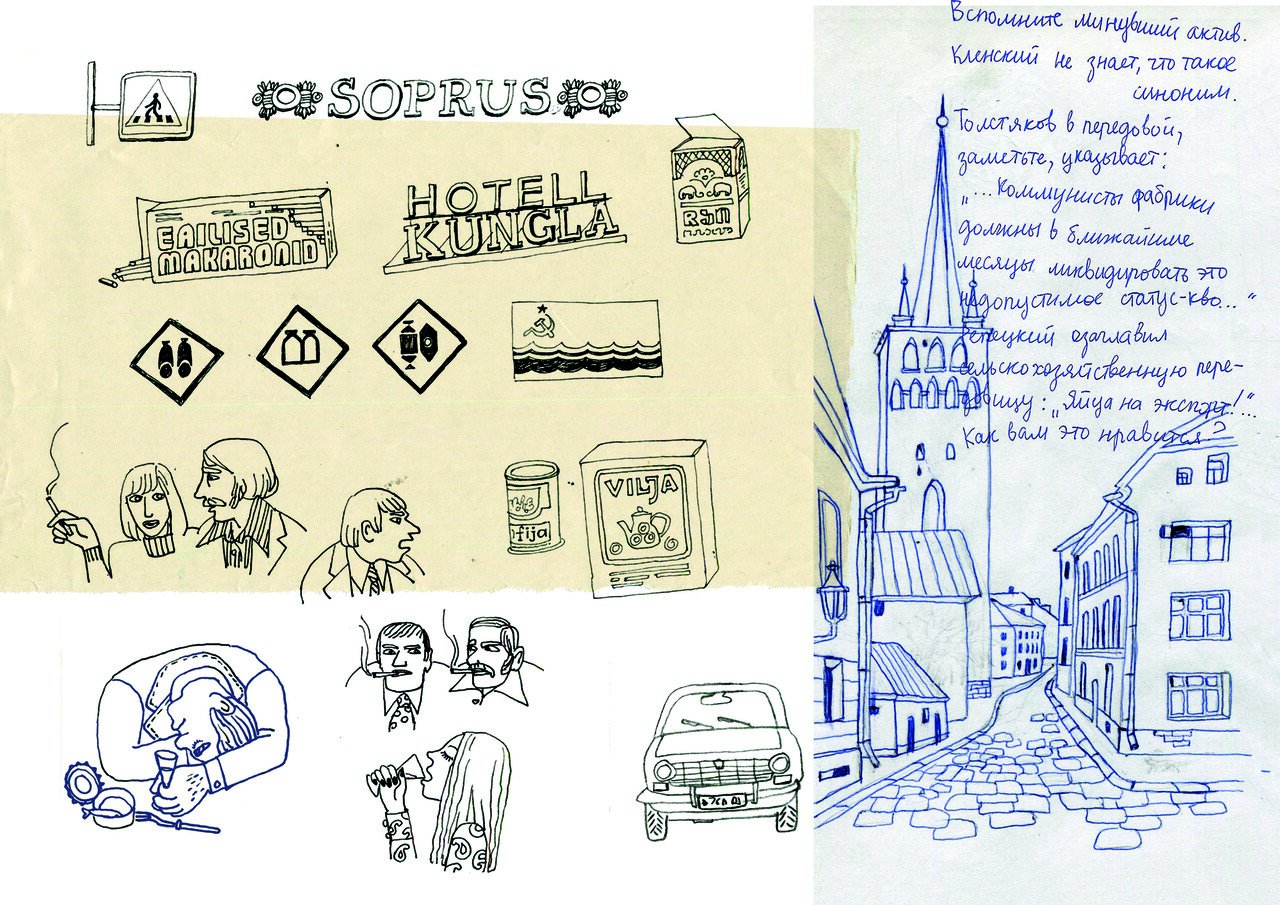 SOPRUS
HOTELL
KUNGLA
EAILISED
MAKARONID
VILJA
fija
Вспомните минувший актив.
Кленский не знает, что такое
синоним.
Толстяков в передовой,
заметьте, указывает:
„...Коммунисты фабрики
должны в ближайшие
месяцы ликвидировать это
недопустимое статус-кво..."
Репецкий озаглавил
сельскохозяйственную пере-
довицу: „Яйца на экспорт!"...
Как вам это нравится?